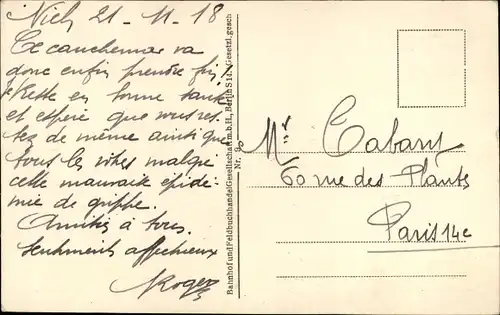 21 - 11 - 18
Ce cauchemar va
donc enfin prendre fin!
Reste en bonne santé
et espère que vous res
tez de même ainsi que
tous les vôtres malgré
cette mauvaise épidé-
mie de grippe.
Amitiés à tous.
Sentiments affectueux
Roger
Bahnhof und Feldbuchhandel Gesellschaft m.b.H., Berlin S
Gesetzl. gesch
Nr. 90
Mr
60 rue des Plantes
Paris 14e